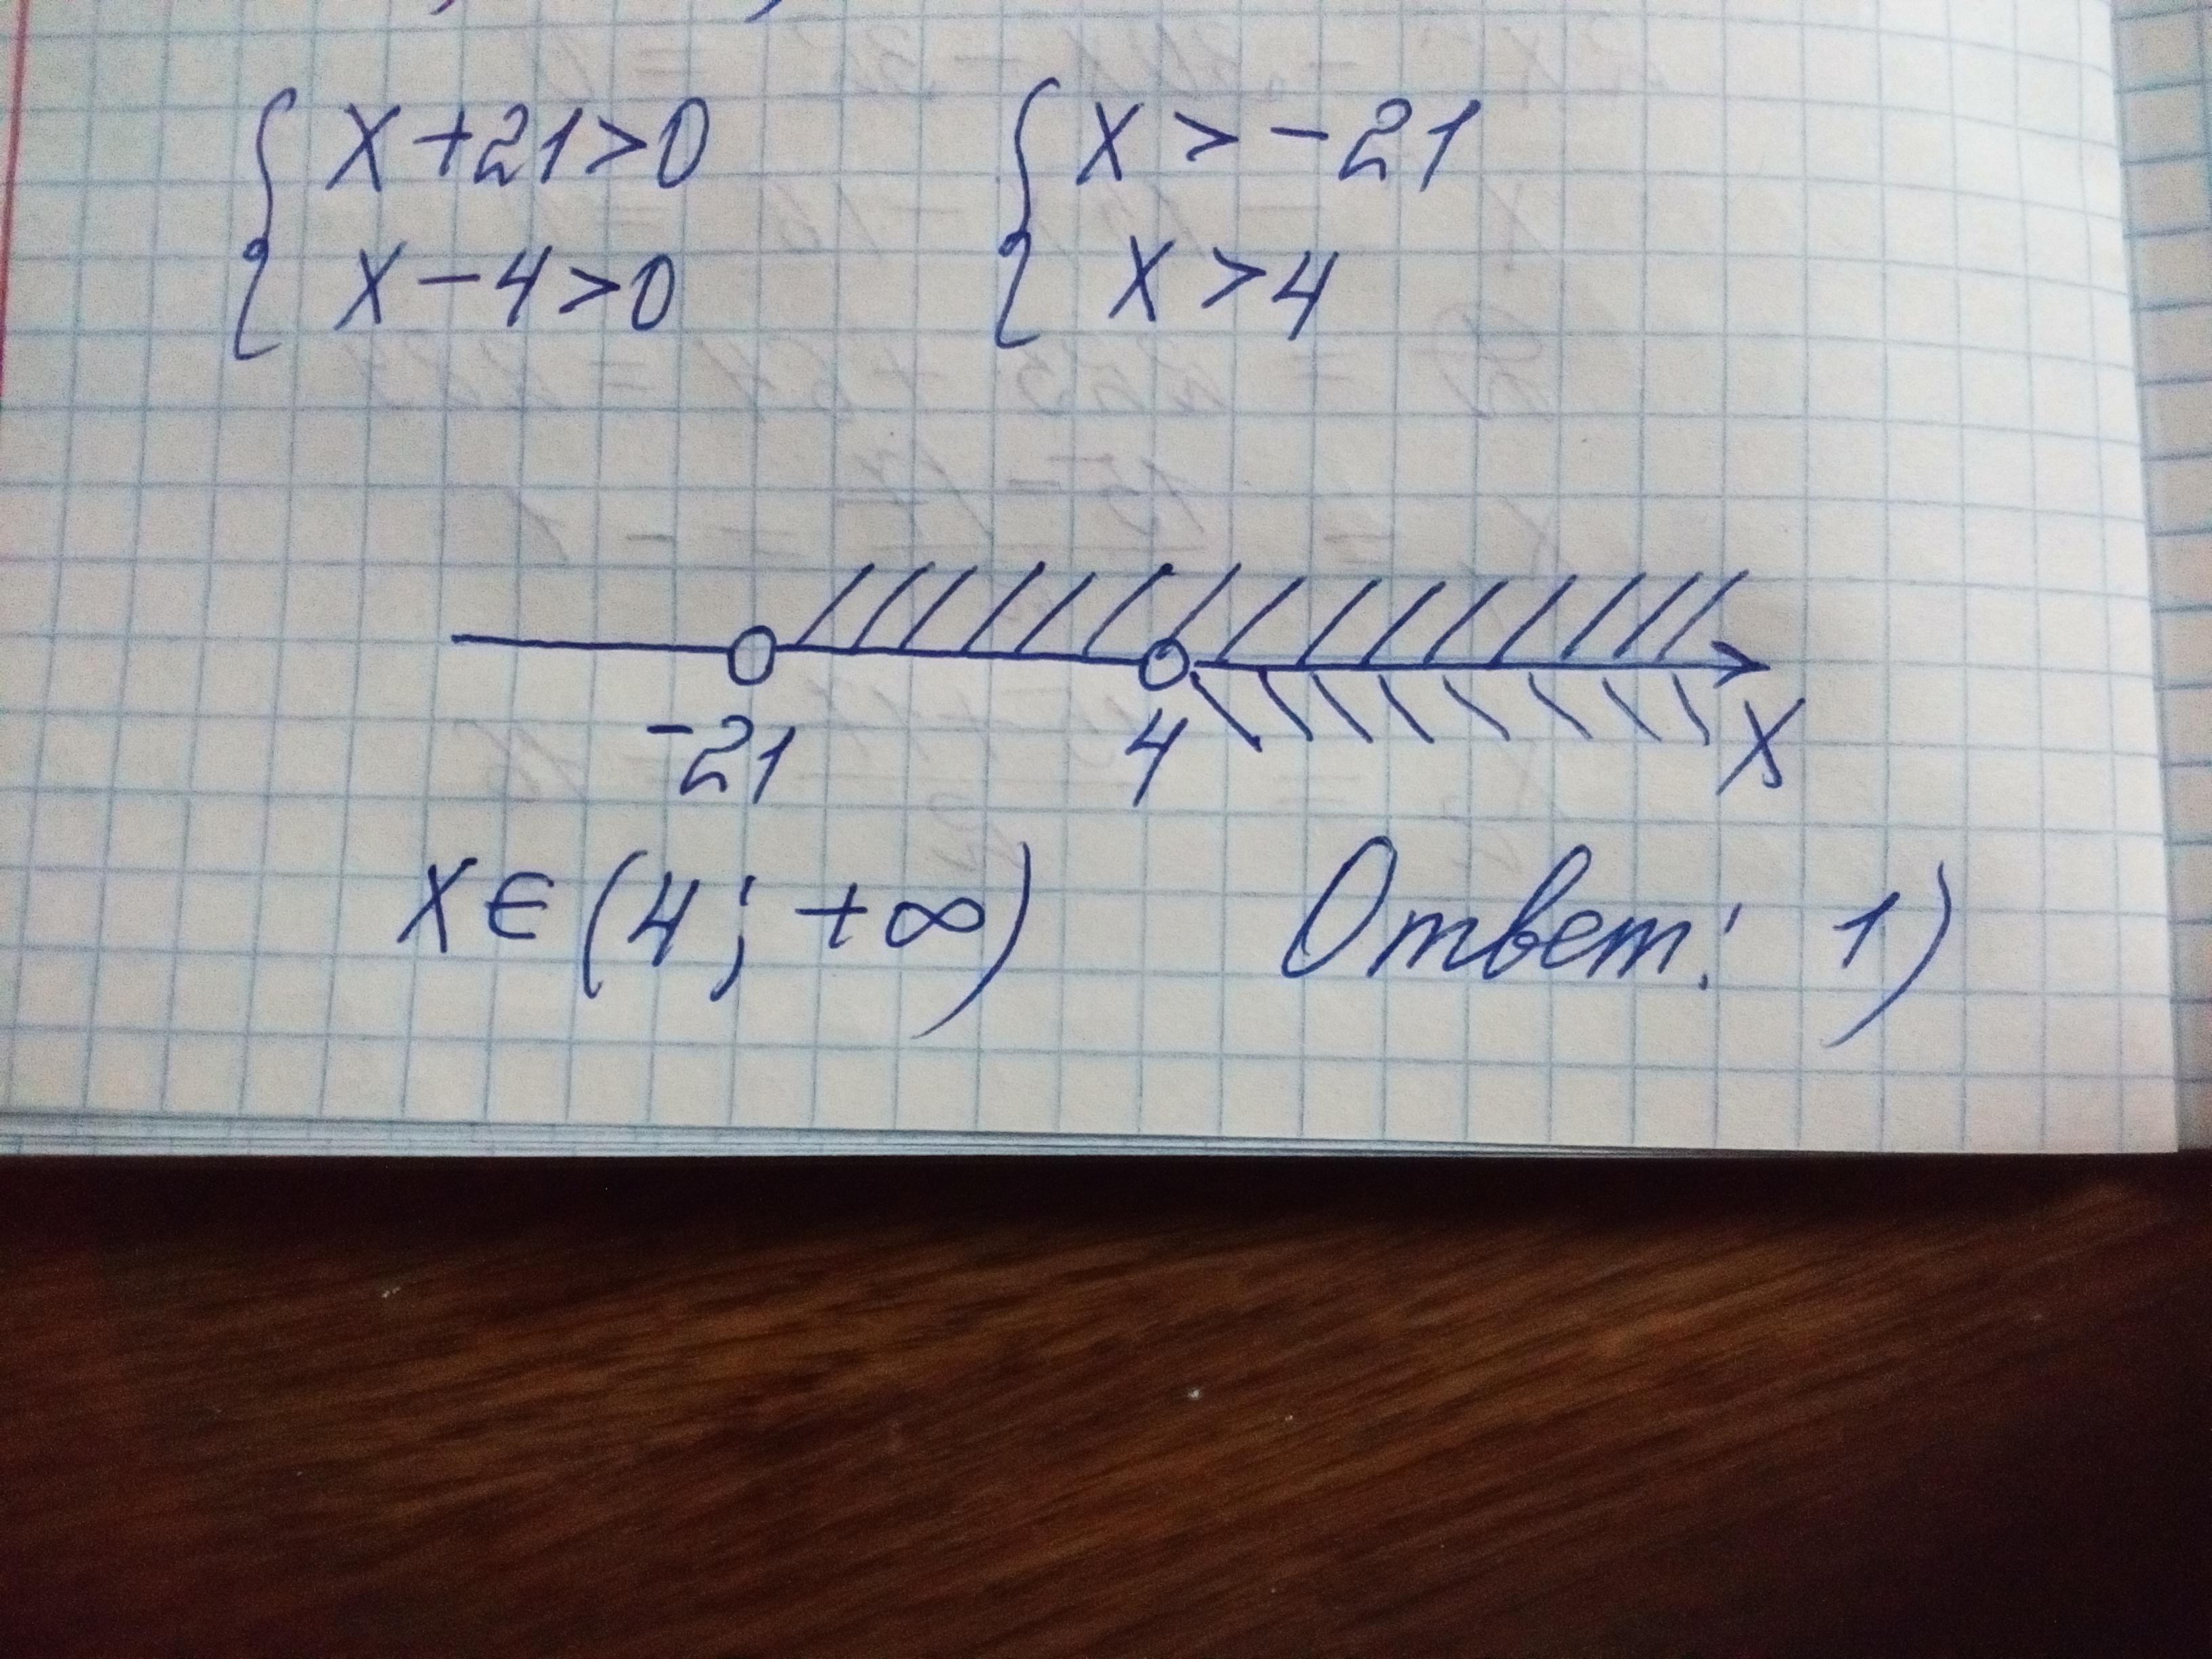 { x+21>0 { x>-21
x-4>0 x>4
-21 4 x
x∈(4;+∞) Ответ: 1)